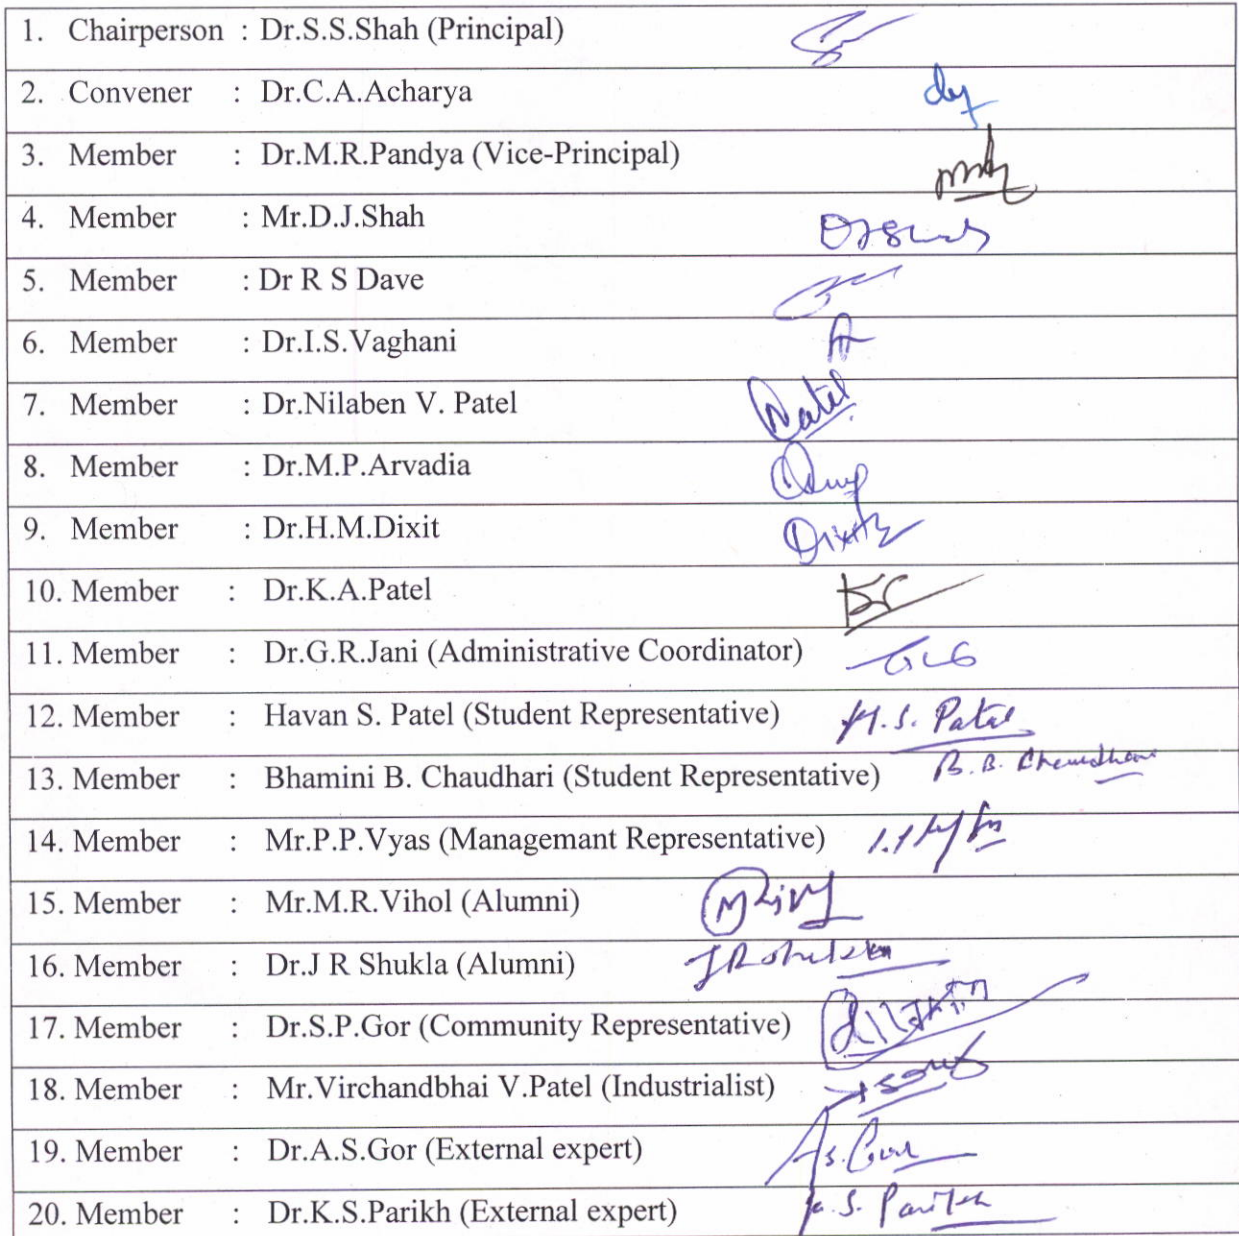 1. Chairperson : Dr.S.S.Shah (Principal)
2. Convener : Dr.C.A.Acharya
3. Member : Dr.M.R.Pandya (Vice-Principal)
4. Member : Mr.D.J.Shah DJShah
5. Member : Dr R S Dave
6. Member : Dr.I.S.Vaghani
7. Member : Dr.Nilaben V. Patel Patel
8. Member : Dr.M.P.Arvadia
9. Member : Dr.H.M.Dixit Dixit
10. Member : Dr.K.A.Patel
11. Member : Dr.G.R.Jani (Administrative Coordinator)
12. Member : Havan S. Patel (Student Representative) H.S. Patel
13. Member : Bhamini B. Chaudhari (Student Representative) B. B. Chaudhari
14. Member : Mr.P.P.Vyas (Managemant Representative)
15. Member : Mr.M.R.Vihol (Alumni)
16. Member : Dr.J R Shukla (Alumni) J R Shukla
17. Member : Dr.S.P.Gor (Community Representative)
18. Member : Mr.Virchandbhai V.Patel (Industrialist)
19. Member : Dr.A.S.Gor (External expert) A.S. Gor
20. Member : Dr.K.S.Parikh (External expert) K. S. Parikh